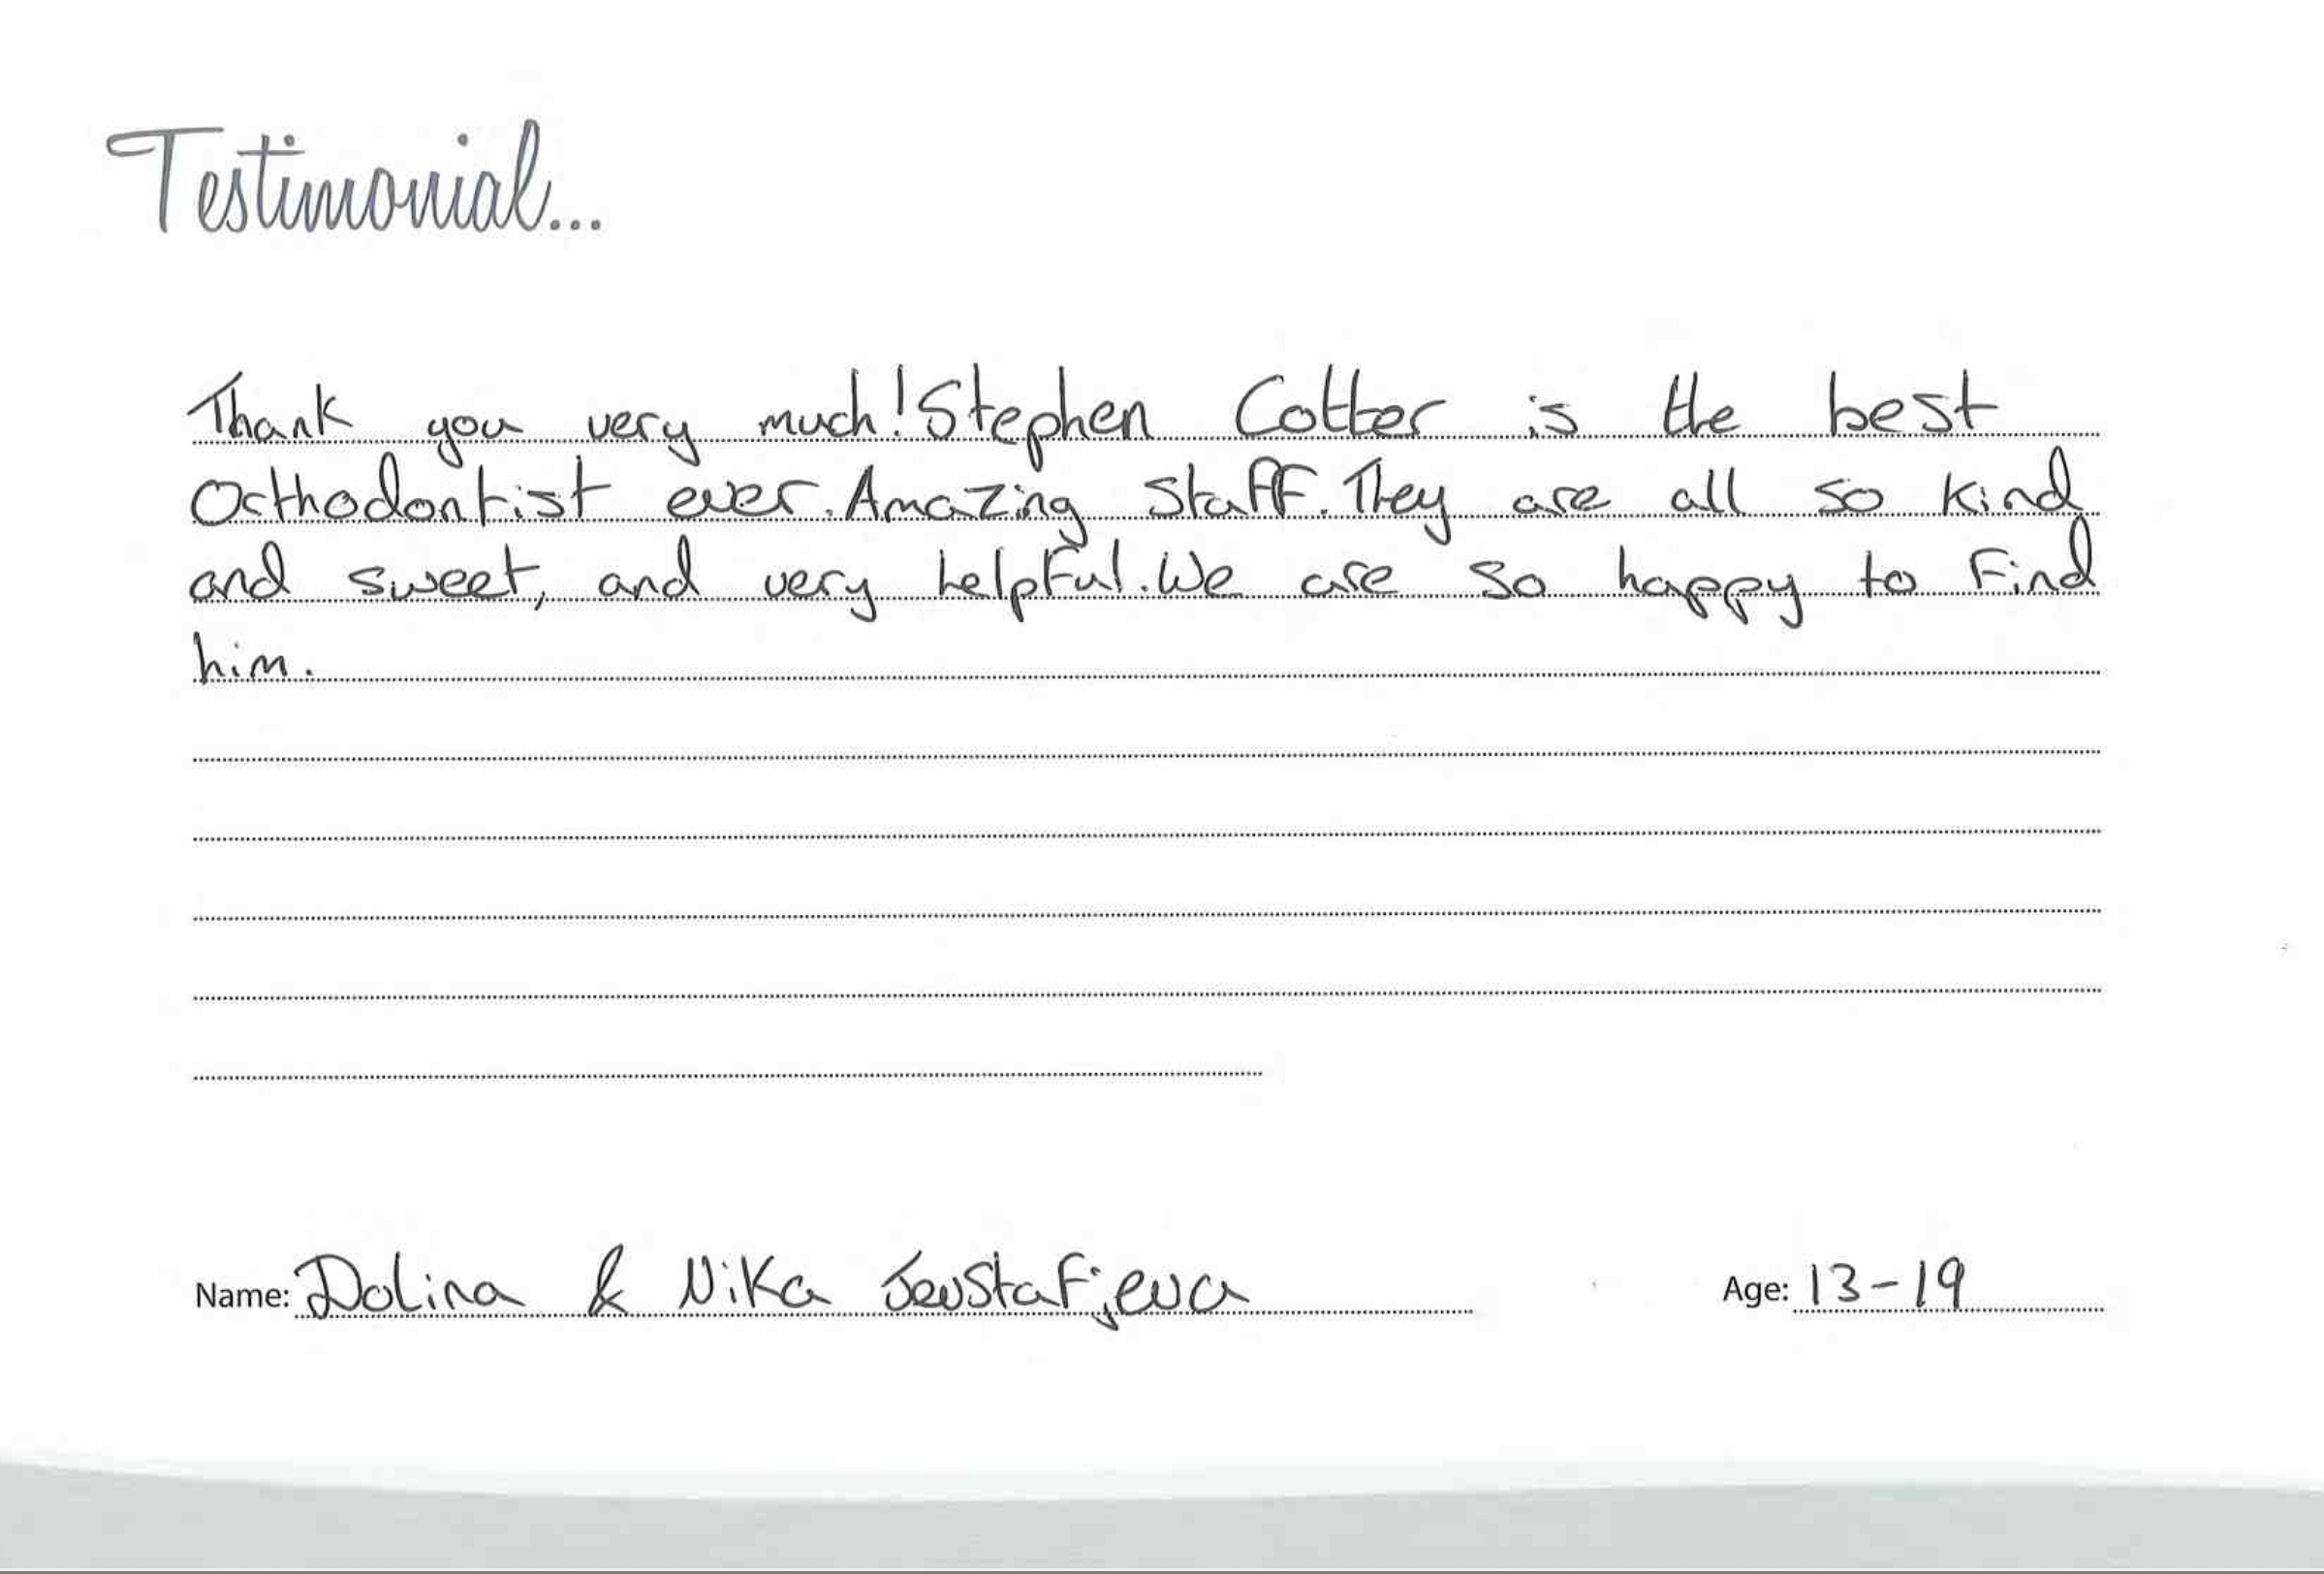 Testimonial...
Thank you very much! Stephen Cotter is the best
Orthodontist ever. Amazing Staff. They are all so kind
and sweet, and very helpful. We are so happy to find
him.
Name: Dolina & Nika Jevstafjeva Age: 13-19